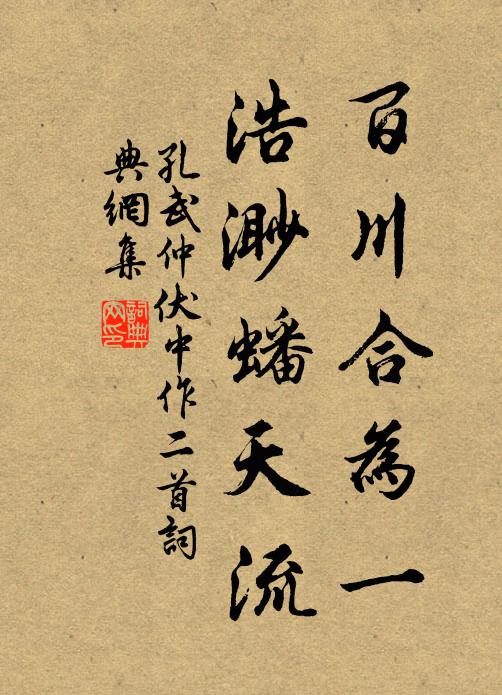 百川合為一
浩渺蟠天流
孔武仲伏中作二首詞
典網集
詞典
网印